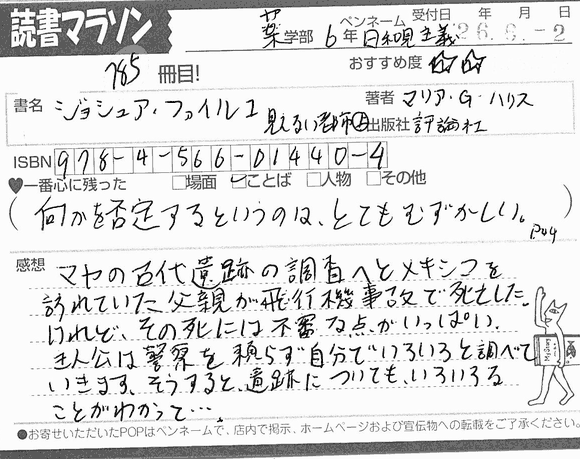 読書マラソン
薬学部 6年 ペンネーム 日和見主義 受付日 26.6.-2 年 月 日
785 冊目! おすすめ度 ☆☆
書名 ジョシュア・ファイル1 見えない都市㊤
著者 マリア・G・ハリス
出版社 評論社
ISBN 978-4-566-01440-4
♥一番心に残った □場面 ☑ことば □人物 □その他
(何かを否定するというのは、とてもむずかしい。) P04
感想 マヤの古代遺跡の調査へとメキシコを
訪れていた父親が飛行機事故で死亡した。
けれど、その死には不審な点がいっぱい。
主人公は警察を頼らず自分でいろいろと調べて
いきます。そうすると、遺跡についても、いろいろな
ことがわかって…。
●お寄せいただいたPOPはペンネームで、店内で掲示、ホームページおよび宣伝物への転載をご了承ください。